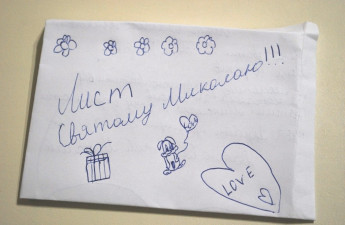 Лист
Святому Миколаю!!!
LOVE